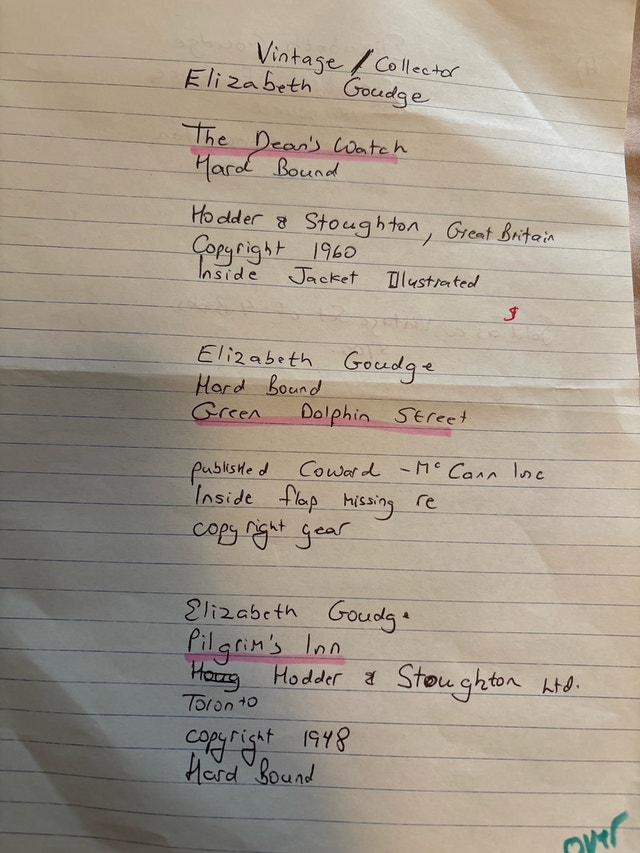 Vintage / Collector
Elizabeth Goudge
The Dean's Watch
Hard Bound
Hodder & Stoughton, Great Britain
Copyright 1960
Inside Jacket Illustrated
$
Elizabeth Goudge
Hard Bound
Green Dolphin Street
published Coward - McCann Inc
Inside flap missing re
copyright year
Elizabeth Goudge
Pilgrim's Inn
Hodder & Stoughton Ltd.
Toronto
copyright 1948
Hard Bound
over